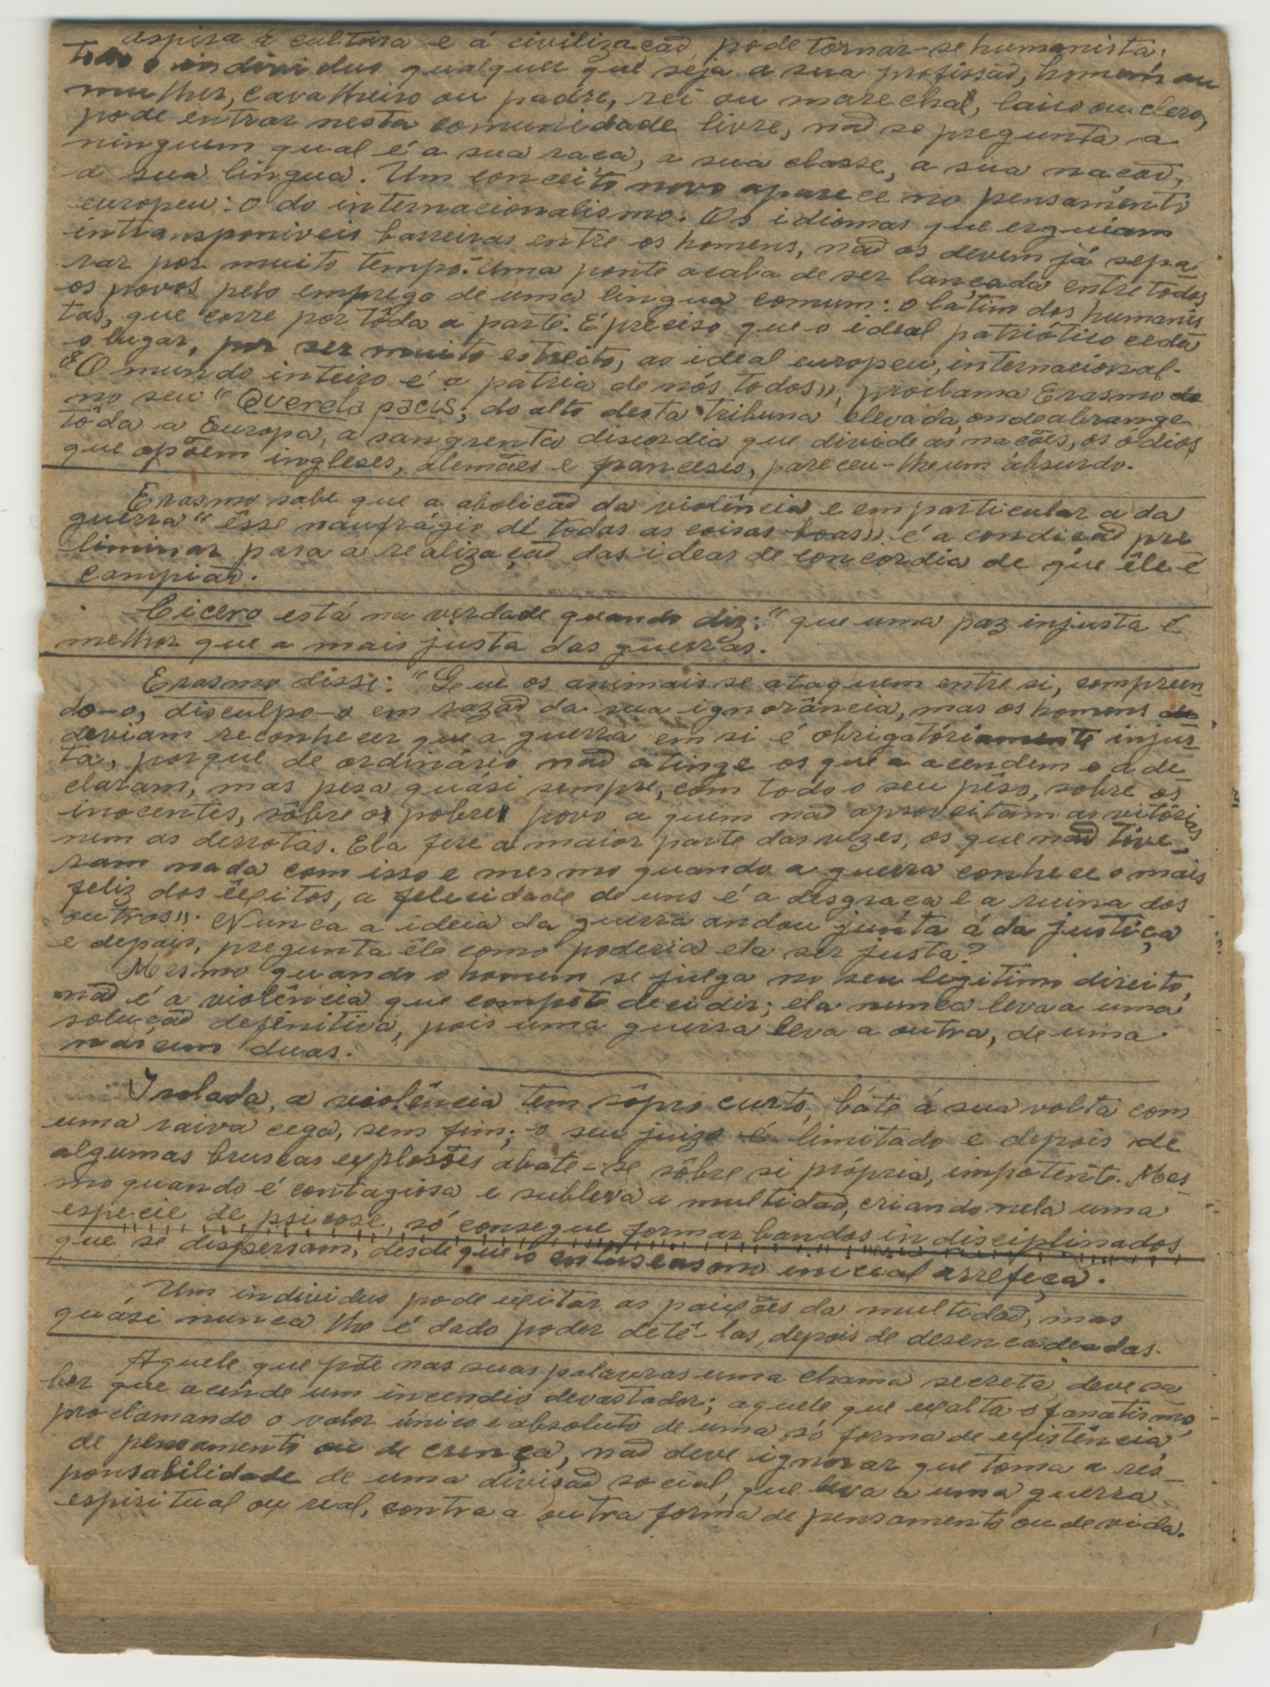 aspira à cultura e á civilização pode tornar-se humanista.
Todo o individuo qualquer que seja a sua profissão, homem ou
mulher, cavalheiro ou padre, rei ou marechal, laico ou clero,
pode entrar nesta comunidade livre, não se pregunta a
ninguem qual é a sua raça, a sua classe, a sua nação,
a sua lingua. Um conceito novo aparece no pensamento
europeu: o do internacionalismo. Os idiomas que erguiam
intransponiveis barreiras entre os homens, não os devem já sepa
rar por muito tempo. Uma ponte acaba de ser lançada entre todos
os povos pelo emprego de uma lingua comum: o latim dos humanis
tas, que corre por tôda a parte. É preciso que o ideal patriótico ceda
o lugar, por ser muito estreito, ao ideal europeu, internacional.
"O mundo inteiro é a pátria de nos todos», proclama Erasmo do
no seu "Querela pacis; do alto desta tribuna elevada, onde abrange
tôda a Europa, a sangrenta discordia que divide as nações, os odios
que opõem ingleses, alemães e franceses, pareceu-lhe um absurdo.
Erasmo sabe que a abolição da violência e em particular a da
guerra "êsse naufrágio de todas as coisas boas» é a condição pre
liminar para a realização das ideas de concordia de que êle é
campião.
Cicero está na verdade quando diz: "que uma paz injusta é
melhor que a mais justa das guerras.
Erasmo disse: "Que os animais se ataquem entre si, compreen
do-o, disculpo-o em razão da sua ignorância, mas os homens de
deviam reconhecer que a guerra em si é obrigatóriamente injus
ta, porque de ordinário não atinge os que a acendem e a de
claram, mas pesa quási sempre, com todo o seu pêso, sobre os
inocentes, sôbre o pobre povo a quem não aproveitam as vitórias
nem as derrotas. Ela fere a maior parte das vezes, os que não tive-
ram nada com isso e mesmo quando a guerra conhece o mais
feliz dos êxitos, a felicidade de uns é a desgraça e a ruina dos
outros». Nunca a ideia da guerra andou junta á da justiça
e depois, pregunta êle como poderia ela ser justa?
Mesmo quando o homem se julga no seu legitimo direito,
não é a violência que compete decidir; ela nunca leva a uma
solução definitiva, pois uma guerra leva a outra, de uma
nascem duas.
Isolada, a violência tem sôpro curto, báte á sua volta com
uma raiva cega, sem fim; o seu juizo é limitado e depois de
algumas bruscas explosões abate-se sôbre si própria, impotente. Mes
mo quando é contagiosa e subleva a multidão, criando nela uma
especie de psicose, só consegue formar bandos indisciplinados
que se dispersam, desde que o entusiasmo inicial arrefeça.
Um individuo pode exitar as paixões da multidão, mas
quási nunca lhe é dado poder detê-las, depois de desencadeadas.
Aquele que põe nas suas palavras uma chama secreta, deve sa
ber que acende um incendio devastador; aquele que exalta o fanatismo
proclamando o valor único e absoluto de uma só forma de existência,
de pensamento ou de crença, não deve ignorar que toma a res-
ponsabilidade de uma divisão social, que leva a uma guerra
espiritual ou real, contra a outra forma de pensamento ou de vida.